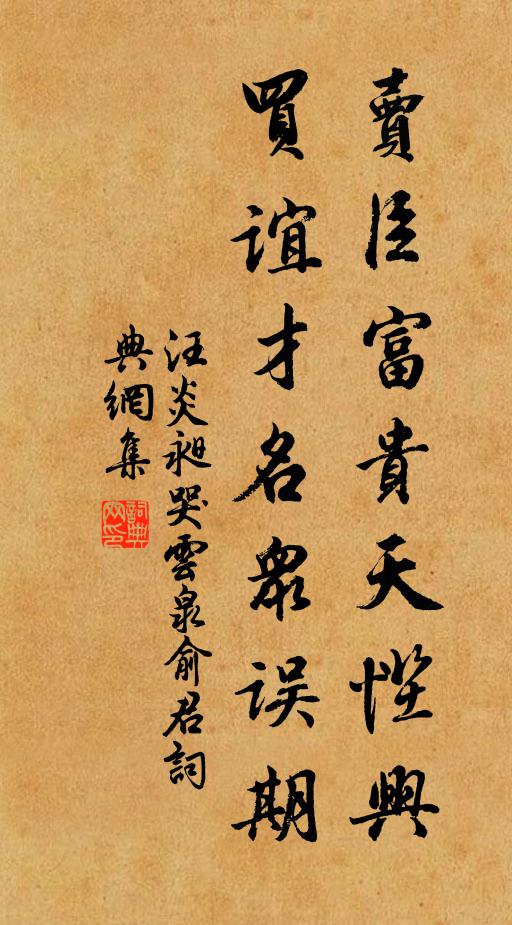 賣臣富貴天慳與
買誼才名眾误期
汪炎昶哭雲泉俞君詞
典網集
詞典
网印